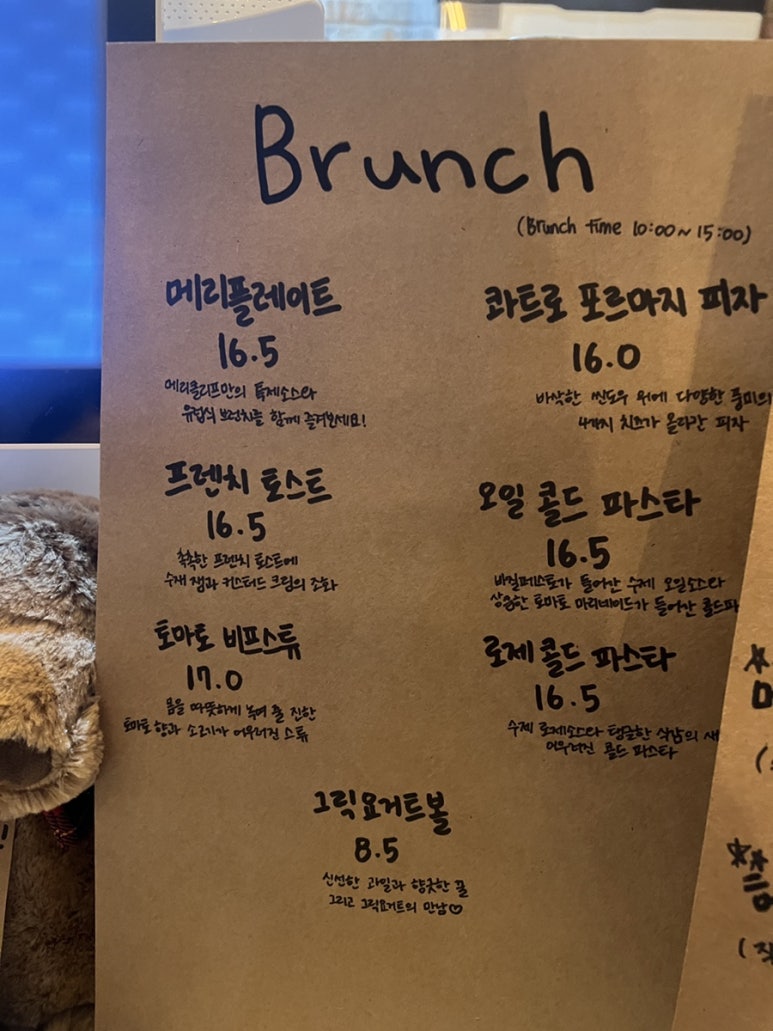 Brunch
(Brunch time 10:00~15:00)
메리플레이트
16.5
메리클리프만의 특제소스와
유럽식 브런치를 함께 즐겨보세요!
프렌치 토스트
16.5
촉촉한 프렌치 토스트에
수제 잼과 커스터드 크림의 조화
토마토 비프스튜
17.0
몸을 따뜻하게 녹여 줄 진한
토마토 향과 소고기가 어우러진 스튜
콰트로 포르마지 피자
16.0
바삭한 씬도우 위에 다양한 풍미의
4가지 치즈가 올라간 피자
오일 콜드 파스타
16.5
바질페스토가 들어간 수제 오일소스와
상큼한 토마토 마리네이드가 들어간 콜드파
로제 콜드 파스타
16.5
수제 로제소스와 탱글한 식감의 새
어우러진 콜드 파스타
그릭요거트볼
8.5
신선한 과일과 향긋한 꿀
그리고 그릭요거트의 만남♡